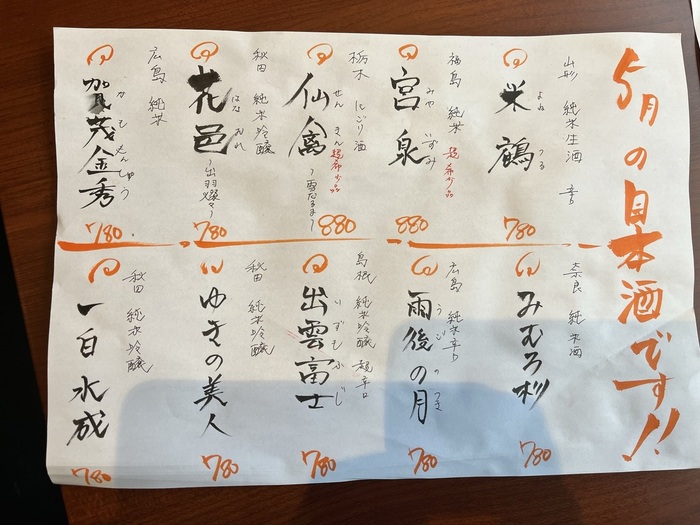 5月の日本酒です!!
山形 純米生酒 辛口
米鶴
よねつる
780
福島 純米 超希少品
宮泉
みやいずみ
880
栃木 にごり酒
仙禽
せんきん
超希少品
～雪だるま～
880
秋田 純米吟醸
花邑
はなむら
～出羽燦々～
780
広島 純米
賀茂金秀
かもきんしゅう
780
奈良 純米酒
みむろ杉
780
広島 純米辛口
雨後の月
うごのつき
780
島根 純米吟醸 超辛口
出雲富士
いずもふじ
780
秋田 純米吟醸
ゆきの美人
780
秋田 純米吟醸
一白水成
780